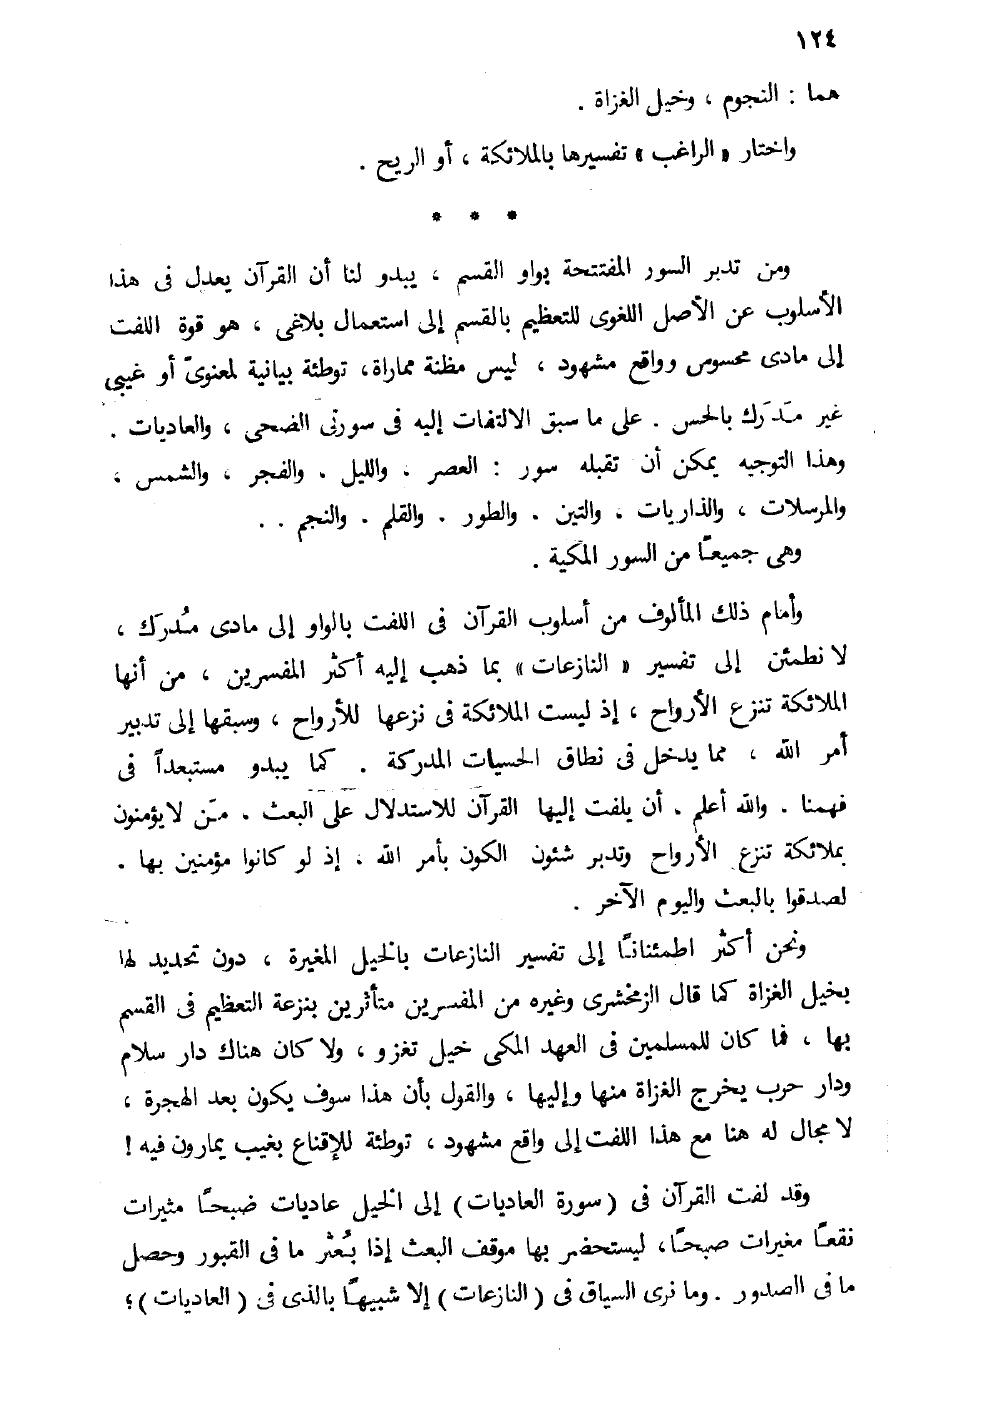 ١٢٤
هما : النجوم ، وخيل الغزاة .
واختار « الراغب » تفسيرها بالملائكة ، أو الريح .
* * *
ومن تدبر السور المفتتحة بواو القسم ، يبدو لنا أن القرآن يعدل فى هذا
الأسلوب عن الأصل اللغوى للتعظيم بالقسم إلى استعمال بلاغى ، هو قوة اللفت
إلى مادى محسوس وواقع مشهود ، ليس مظنة مماراة، توطئة بيانية لمعنوىّ أو غيبى
غير مدَرك بالحس . على ما سبق الالتفات إليه فى سورتى الضحى ، والعاديات .
وهذا التوجيه يمكن أن تقبله سور : العصر ، والليل . والفجر ، والشمس ،
والمرسلات ، والذاريات ، والتين . والطور . والقلم . والنجم . .
وهى جميعاً من السور المكية .
وأمام ذلك المألوف من أسلوب القرآن فى اللفت بالواو إلى مادى مُدرَك ،
لا نطمئن إلى تفسير « النازعات » بما ذهب إليه أكثر المفسرين ، من أنها
الملائكة تنزع الأرواح ، إذ ليست الملائكة فى نزعها للأرواح ، وسبقها إلى تدبير
أمر الله ، مما يدخل فى نطاق الحسيات المدركة . كما يبدو مستبعداً فى
فهمنا . والله أعلم . أن يلفت إليها القرآن للاستدلال على البعث . مَن لا يؤمنون
بملائكة تنزع الأرواح وتدبر شئون الكون بأمر الله ، إذ لو كانوا مؤمنين بها .
لصدقوا بالبعث واليوم الآخر .
ونحن أكثر اطمئناناً إلى تفسير النازعات بالخيل المغيرة ، دون تحديد لها
بخيل الغزاة كما قال الزمخشرى وغيره من المفسرين متأثرين بنزعة التعظيم فى القسم
بها ، فما كان للمسلمين فى العهد المكى خيل تغزو ، ولا كان هناك دار سلام
ودار حرب يخرج الغزاة منها وإليها ، والقول بأن هذا سوف يكون بعد الهجرة ،
لا مجال له هنا مع هذا اللفت إلى واقع مشهود ، توطئة للإقناع بغيب يمارون فيه !
وقد لفت القرآن فى ( سورة العاديات ) إلى الخيل عاديات ضبحاً مثيرات
نقعاً مغيرات صبحاً، ليستحضر بها موقف البعث إذا بُعثر ما فى القبور وحصل
ما فى الصدور . وما نرى السياق فى ( النازعات ) إلا شبيهاً بالذى فى ( العاديات ) ؛